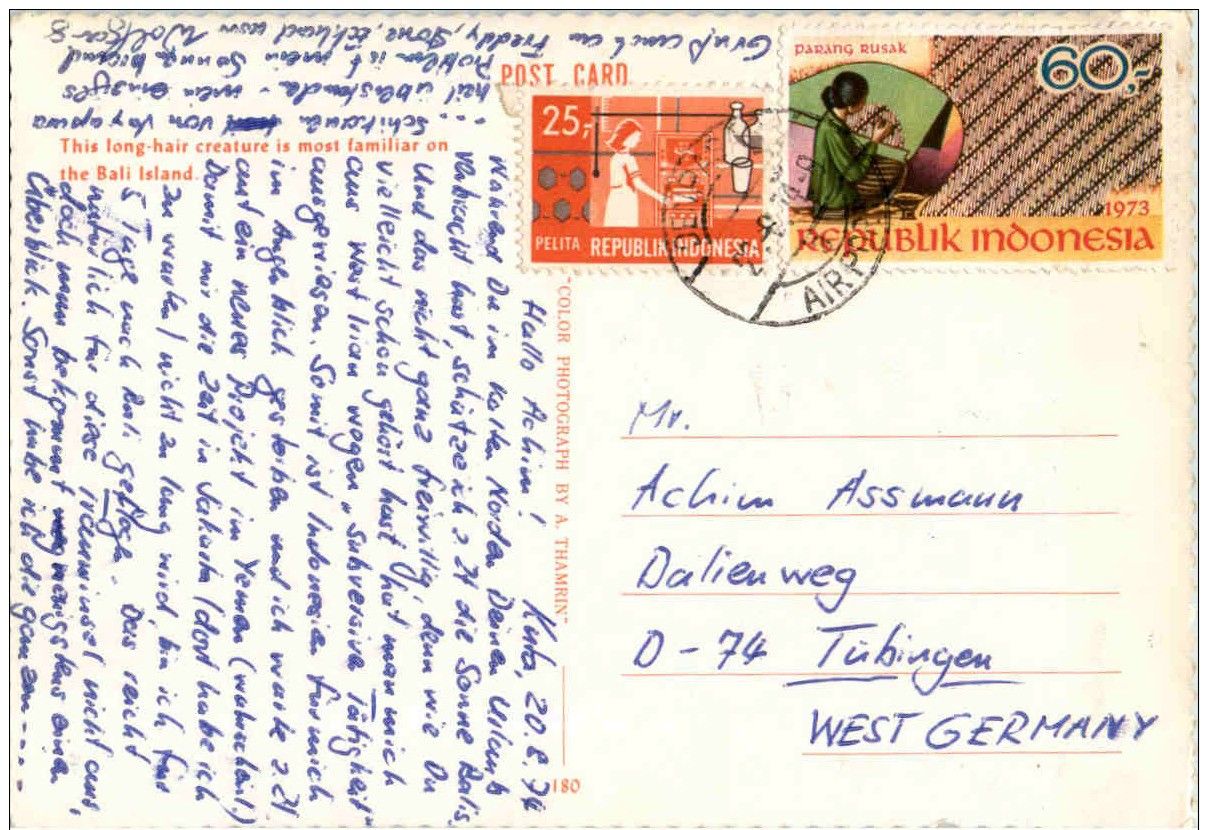 POST CARD
This long-hair creature is most familiar on
the Bali Island.
25,-
PELITA REPUBLIK INDONESIA
PARANG RUSAK
60,-
1973
REPUBLIK INDONESIA
AIRP
"COLOR PHOTOGRAPH BY A. THAMRIN"
180
Kuta, 20.8.74
Hallo Achim!
Während Du im kalten Norden Deinen Urlaub
verbracht hast, schütze ich z.Zt die Sonne Balis.
Und das nicht ganz freiwillig, denn wie Du
vielleicht schon gehört hast, hat man mich
aus West Irian wegen "subversive Tätigkeit"
ausgewiesen. Somit ist Indonesien für mich
im Augenblick gestorben und ich warte z.Zt.
auf ein neues Projekt im Yemen (wahrscheinl.)
Damit mir die Zeit in Jakarta (dort habe ich
zu warten) nicht zu lang wird, bin ich für
5 Tage nach Bali geflogen. Das reicht
natürlich für diese Trauminsel nicht aus,
doch man bekommt wenigstens einen
Überblick. Sonst habe ich die ganzen
Schikanen von
heil überstanden - mein einziges
Problem ist mein Sonnenbrand
Gruß auch an Freddy, von Wolfgang
Mr.
Achim Assmann
Dalienweg
D-74 Tübingen
WEST GERMANY